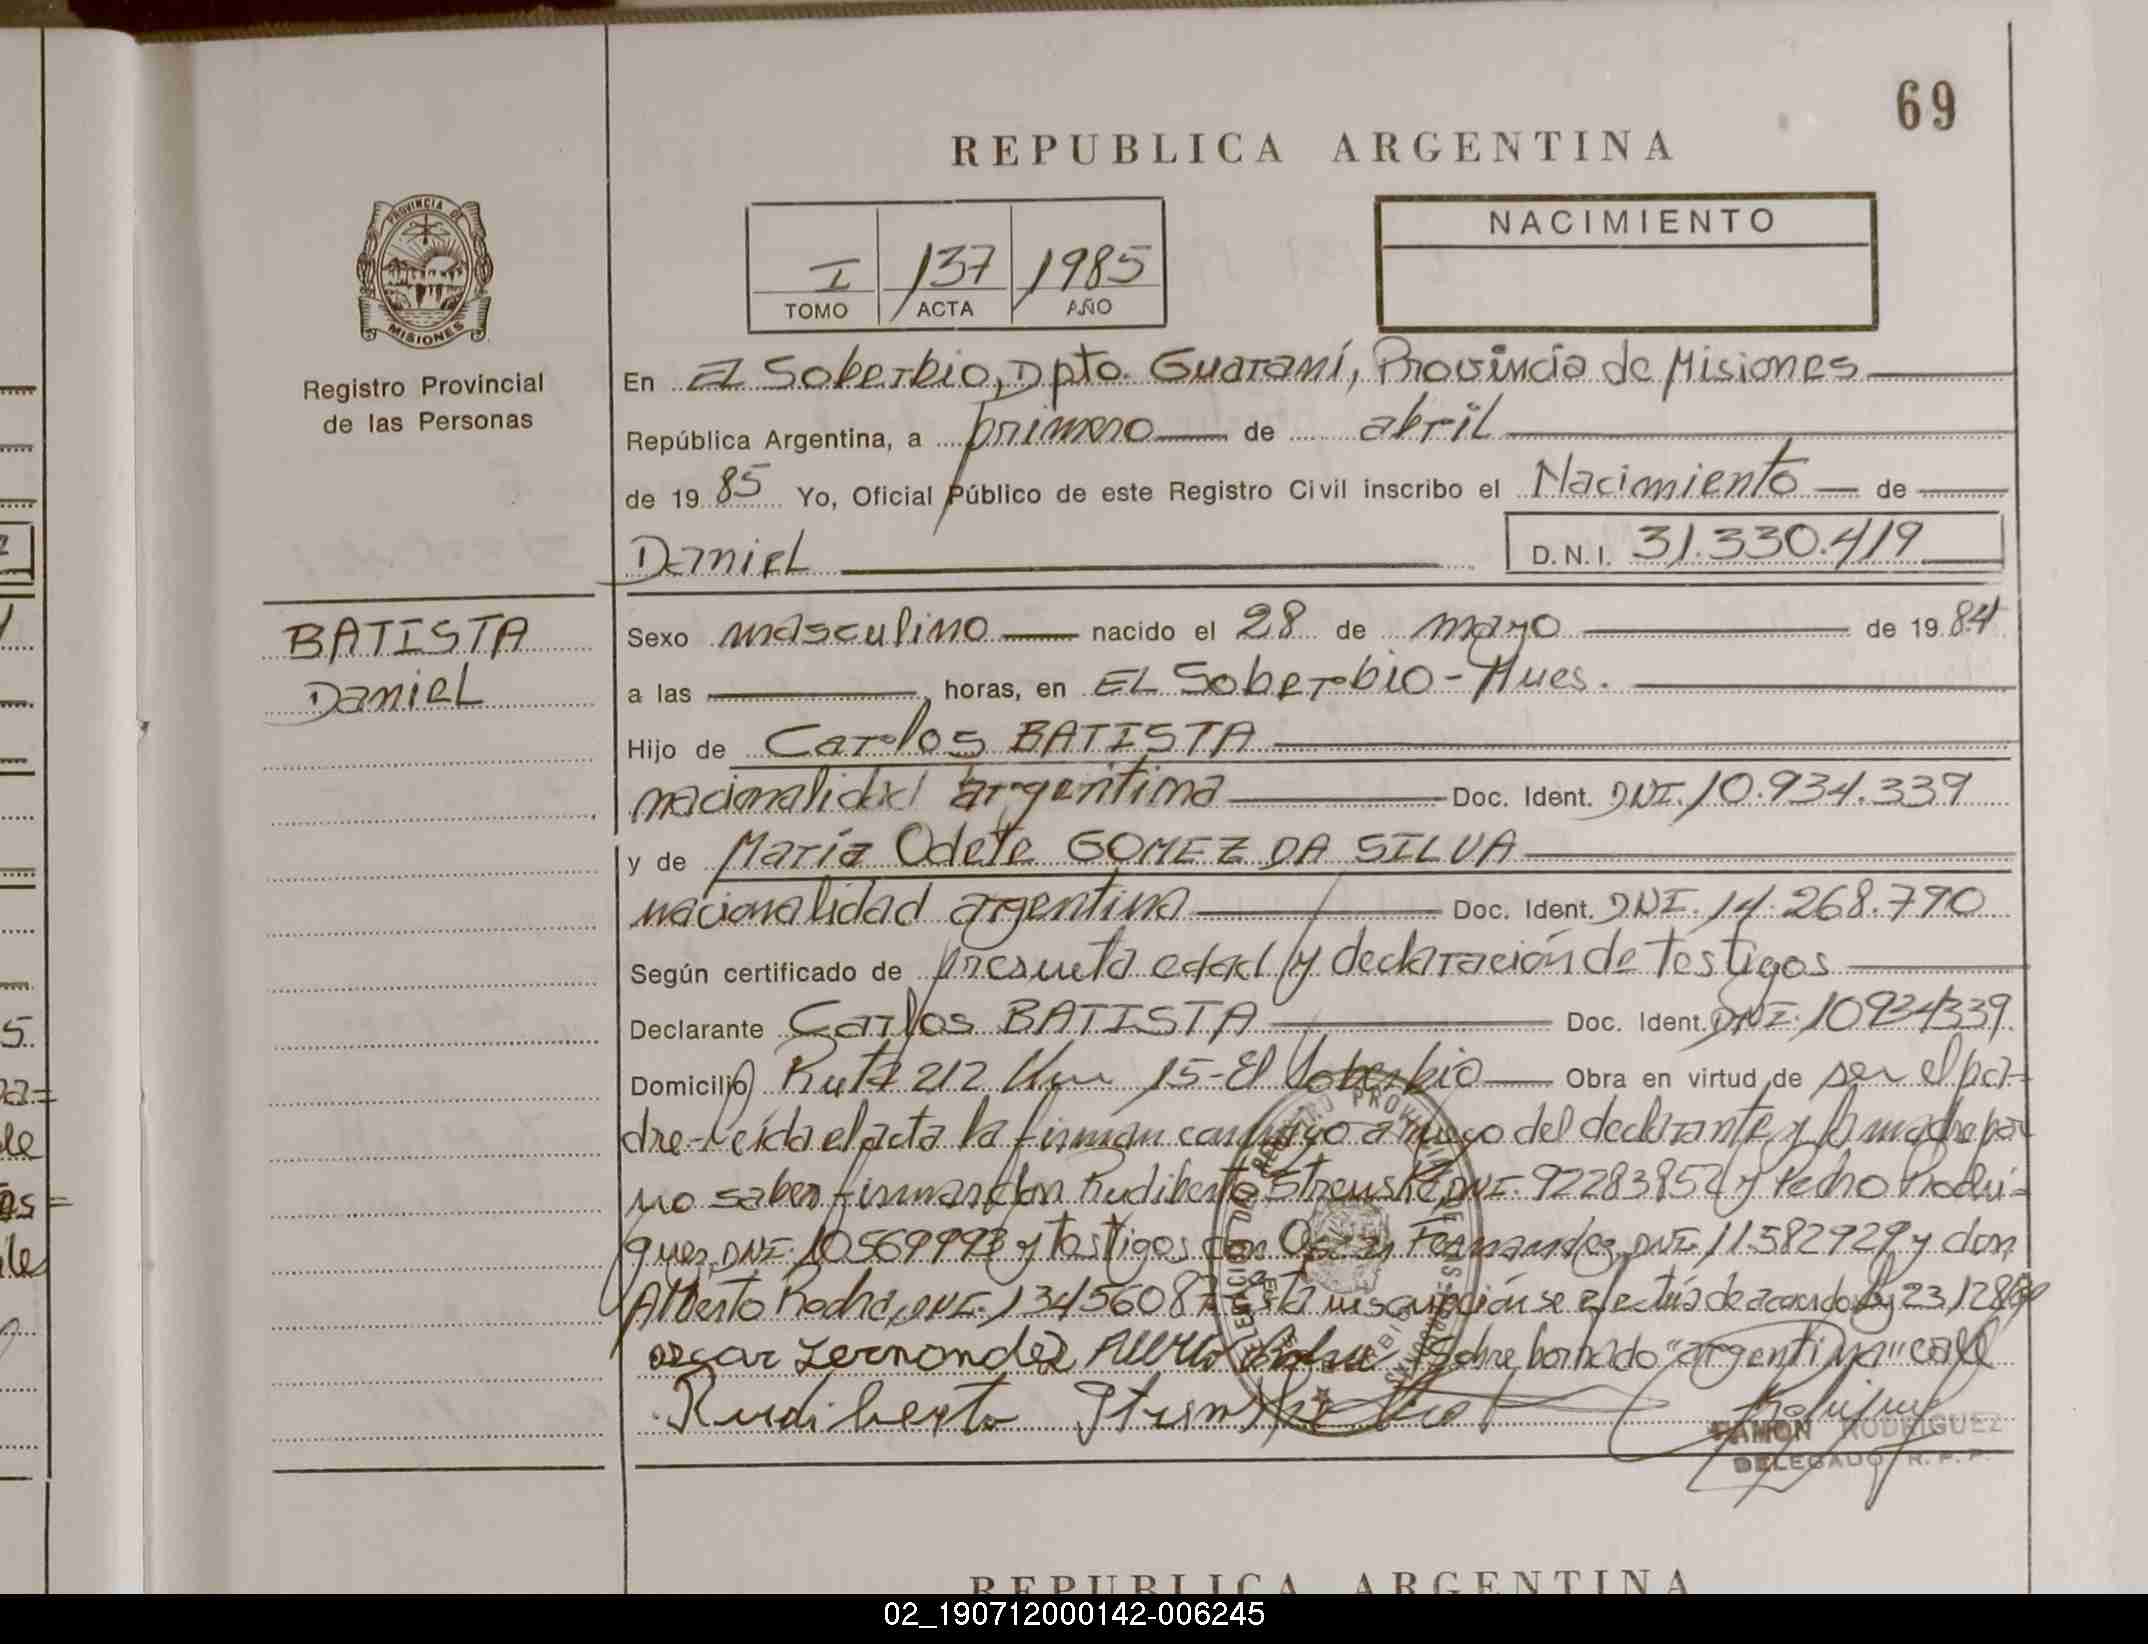 69
REPUBLICA ARGENTINA
PROVINCIA DE
MISIONES
Registro Provincial
de las Personas
I 137 1985
TOMO ACTA AÑO
NACIMIENTO
En El Soberbio, Dpto. Guaraní, Provincia de Misiones
República Argentina, a primero de abril
de 19 85 Yo, Oficial Público de este Registro Civil inscribo el Nacimiento de
Daniel D.N.I. 31.330.419
BATISTA
Daniel
Sexo masculino nacido el 28 de mayo de 19 84
a las horas, en El Soberbio-Mnes.
Hijo de Carlos BATISTA
nacionalidad argentina Doc. Ident. DNI. 10.934.339
y de María Odete GOMEZ DA SILVA
nacionalidad argentina Doc. Ident. DNI. 14.268.790
Según certificado de presunta edad y declaración de testigos
Declarante Carlos BATISTA Doc. Ident. DNI. 10934339
Domicilio Ruta 212 Km 15-El Soberbio Obra en virtud de ser el pa-
dre-Leída el acta la firman conmigo a ruego del declarante y la madre por
no saber firmar don Rudiberto DNI. 92283852 y Pedro Rodri-
guez, DNI. 10569993 y testigos don Oscar Fernandez, DNI. 11582929 y don
Alberto Rocha, DNI. 13456087 Esta inscripción se efectúa de acuerdo Ley 23128
oscar Fernondez Sobre borrado "argentina" vale
Rudiberto
RAMON RODRIGUEZ
DELEGADO R. P. P.
REPUBLICA ARGENTINA
02_190712000142-006245